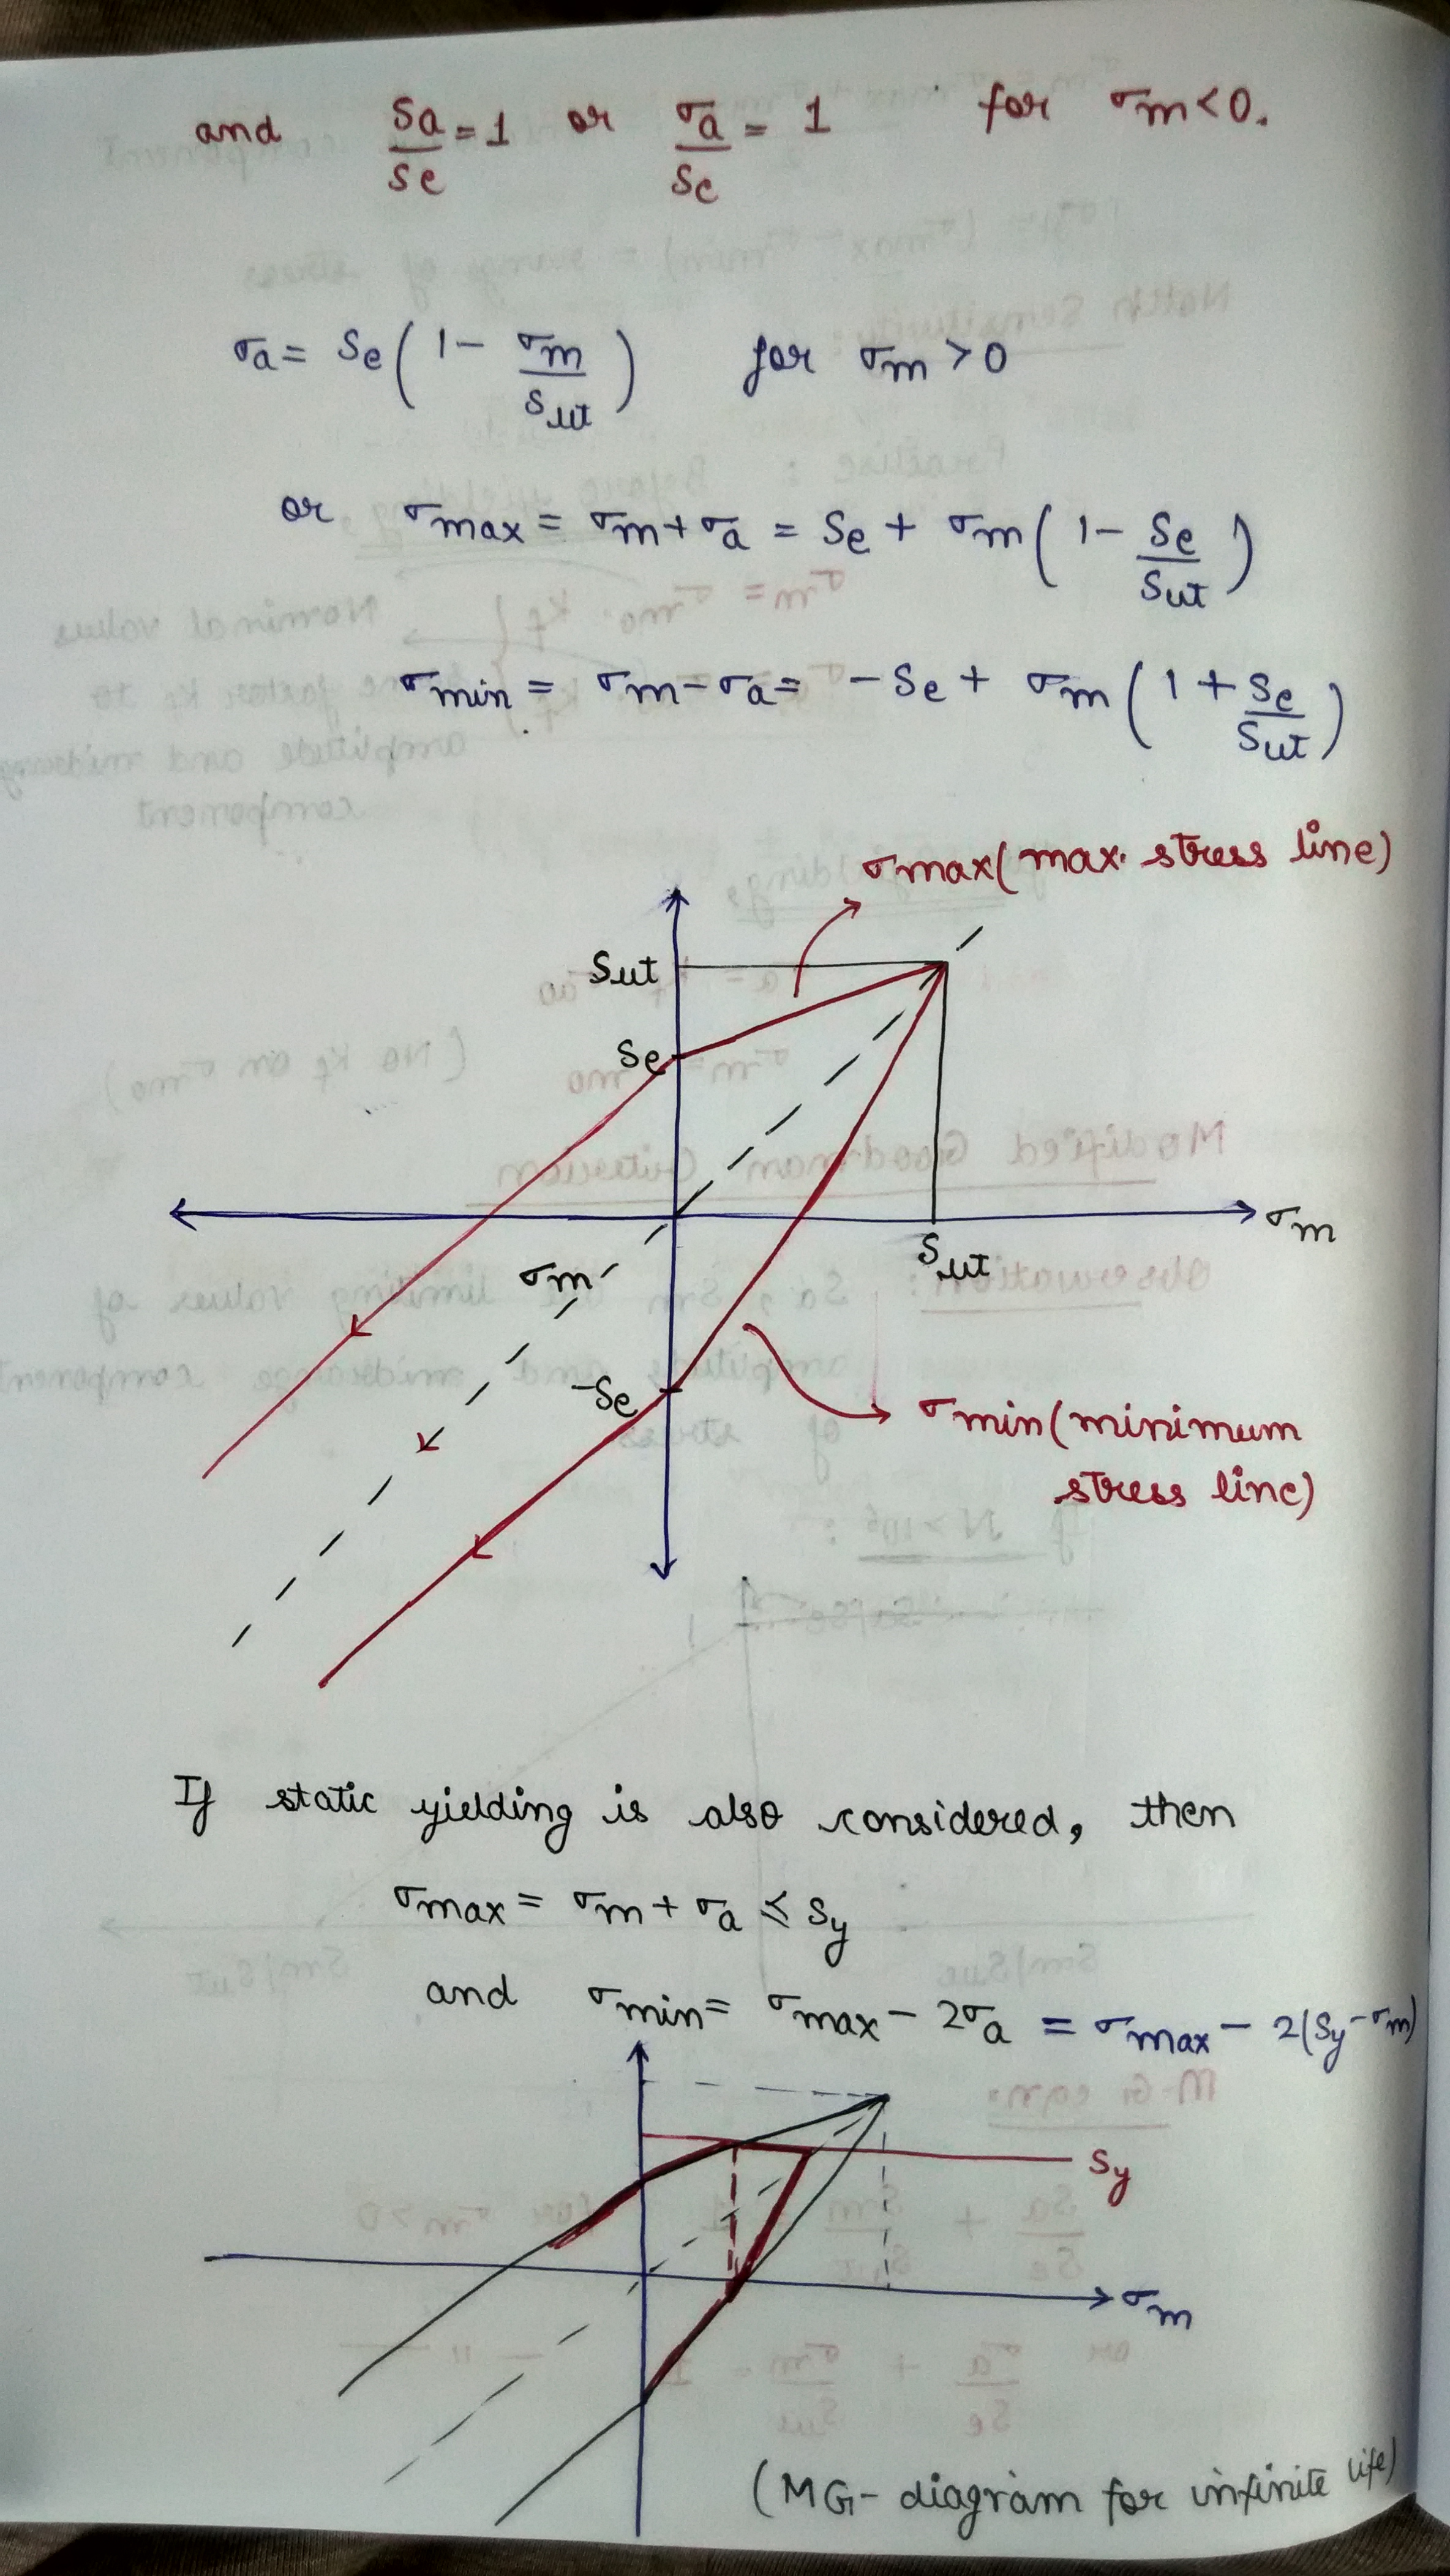 and Sa/Se = 1 or σa/Se = 1 for σm < 0.
σa = Se(1 - σm/Sut) for σm > 0
or σmax = σm + σa = Se + σm(1 - Se/Sut)
σmin = σm - σa = -Se + σm(1 + Se/Sut)
σmax (max. stress line)
Sut
Se
σm
Sut
σm
-Se
σmin (minimum
stress line)
If static yielding is also considered, then
σmax = σm + σa ≤ Sy
and σmin = σmax - 2σa = σmax - 2(Sy - σm)
Sy
σm
(MG- diagram for infinite life)